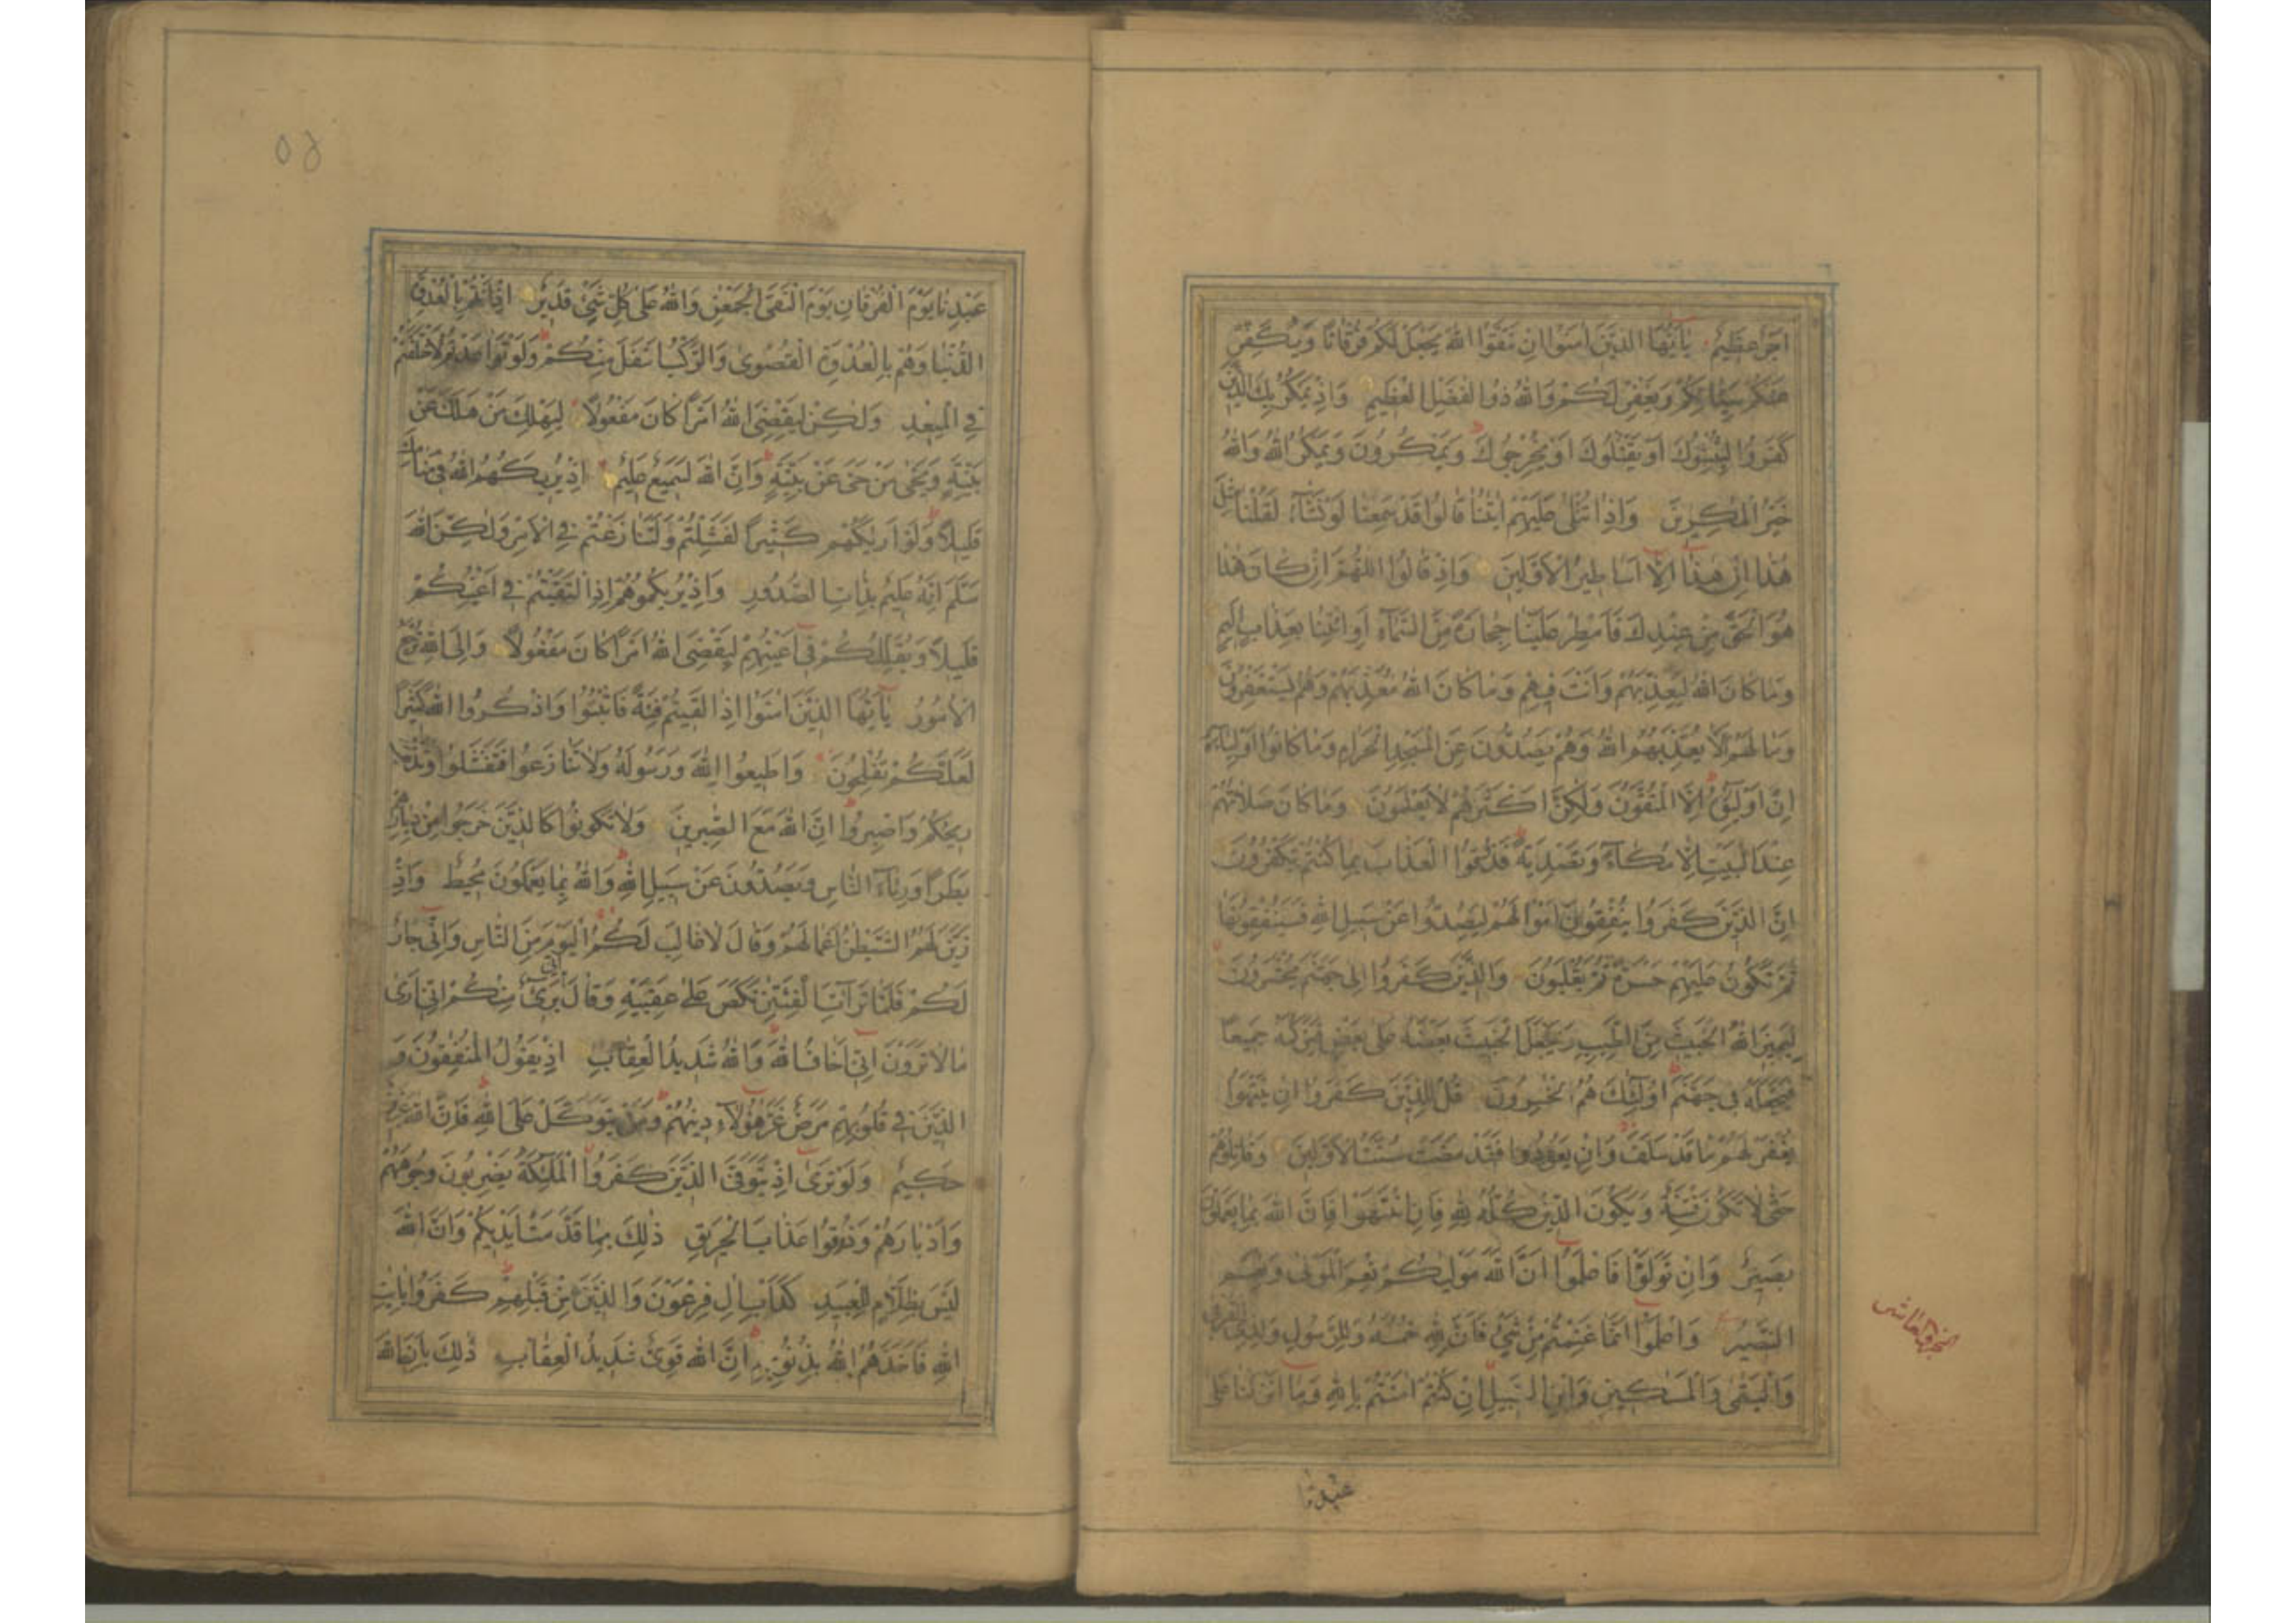 اجر عظيم يا أيها الذين امنوا ان تتقوا الله يجعل لكم فرقانا ويكفر
عنكم سياتكم ويغفر لكم والله ذو الفضل العظيم واذ يمكر بك الذين
كفروا ليثبتوك او يقتلوك او يخرجوك ويمكرون ويمكر الله والله
خير المكرين واذا تتلى عليهم ايتنا قالوا قد سمعنا لو نشآء لقلنا مثل
هذا ان هذا الا اساطير الاولين واذ قالوا اللهم ان كان هذا
هو الحق من عندك فامطر علينا حجارة من السمآء او ائتنا بعذاب اليم
وما كان الله ليعذبهم وانت فيهم وما كان الله معذبهم وهم يستغفرون
وما لهم الا يعذبهم الله وهم يصدون عن المسجد الحرام وما كانوا اوليآءه
ان اوليآؤه الا المتقون ولكن اكثرهم لا يعلمون وما كان صلاتهم
عند البيت الا مكآء وتصدية فذوقوا العذاب بما كنتم تكفرون
ان الذين كفروا ينفقون اموالهم ليصدوا عن سبيل الله فسينفقونها
ثم تكون عليهم حسرة ثم يغلبون والذين كفروا الى جهنم يحشرون
ليميز الله الخبيث من الطيب ويجعل الخبيث بعضه على بعض فيركمه جميعا
فيجعله في جهنم اولئك هم الخسرون قل للذين كفروا ان ينتهوا
يغفر لهم ما قد سلف وان يعودوا فقد مضت سنت الاولين وقاتلوهم
حتى لا تكون فتنة ويكون الدين كله لله فان انتهوا فان الله بما يعملون
بصير وان تولوا فاعلموا ان الله موليكم نعم المولى ونعم
النصير واعلموا انما غنمتم من شئ فان لله خمسه وللرسول ولذي القربى
واليتمى والمسكين وابن السبيل ان كنتم امنتم بالله وما انزلنا على
عبدنا
الجزء العاشر
عبدنا يوم الفرقان يوم التقى الجمعن والله على كل شئ قدير اذ انتم بالعدوة
الدنيا وهم بالعدوة القصوى والركب اسفل منكم ولو تواعدتم لاختلفتم
في الميعد ولكن ليقضى الله امرا كان مفعولا ليهلك من هلك عن
بينة ويحيى من حى عن بينة وان الله لسميع عليم اذ يريكهم الله في منامك
قليلا ولو اريكهم كثيرا لفشلتم ولتنازعتم في الامر ولكن الله
سلم انه عليم بذات الصدور واذ يريكموهم اذ التقيتم في اعينكم
قليلا ويقللكم في اعينهم ليقضى الله امرا كان مفعولا والى الله ترجع
الامور يا أيها الذين امنوا اذا لقيتم فئة فاثبتوا واذكروا الله كثيرا
لعلكم تفلحون واطيعوا الله ورسوله ولا تنازعوا فتفشلوا وتذهب
ريحكم واصبروا ان الله مع الصبرين ولا تكونوا كالذين خرجوا من ديارهم
بطرا ورئآء الناس ويصدون عن سبيل الله والله بما يعملون محيط واذ
زين لهم الشيطن اعمالهم وقال لا غالب لكم اليوم من الناس واني جار
لكم فلما ترآءت الفئتن نكص على عقبيه وقال اني برئ منكم اني ارى
ما لا ترون اني اخاف الله والله شديد العقاب اذ يقول المنفقون و
الذين في قلوبهم مرض غر هؤلآء دينهم ومن يتوكل على الله فان الله عزيز
حكيم ولو ترى اذ يتوفى الذين كفروا الملئكة يضربون وجوههم
وادبارهم وذوقوا عذاب الحريق ذلك بما قدمت ايديكم وان الله
ليس بظلام للعبيد كداب ال فرعون والذين من قبلهم كفروا بايات
الله فاخذهم الله بذنوبهم ان الله قوي شديد العقاب ذلك بان الله